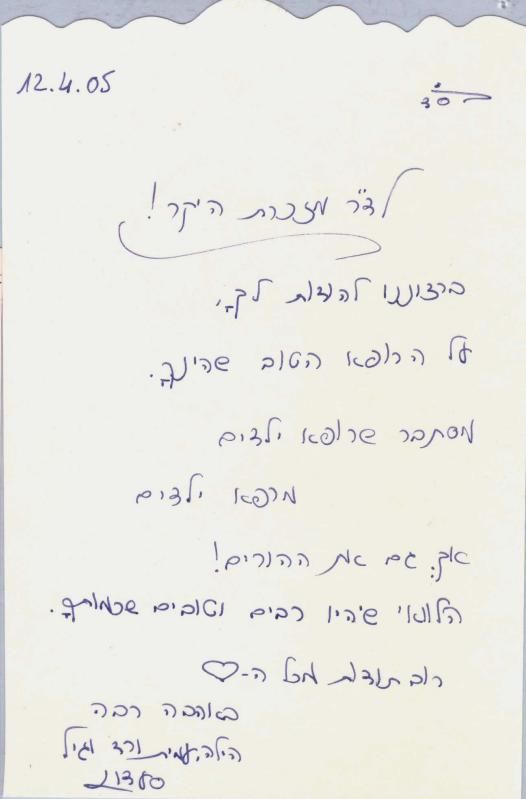 12.4.05
בס"ד
לד"ר מזכרת היקר!
ברצוננו להודות לך,
על הרופא הטוב שהינך.
מסתבר שרופא ילדים
מרפא ילדים
אך גם את ההורים!
הלוואי שיהיו רבים וטובים שכמותך.
רוב תודות מכל ה-♡
באהבה רבה
הילה, עמית ורד וגיל
סעדון